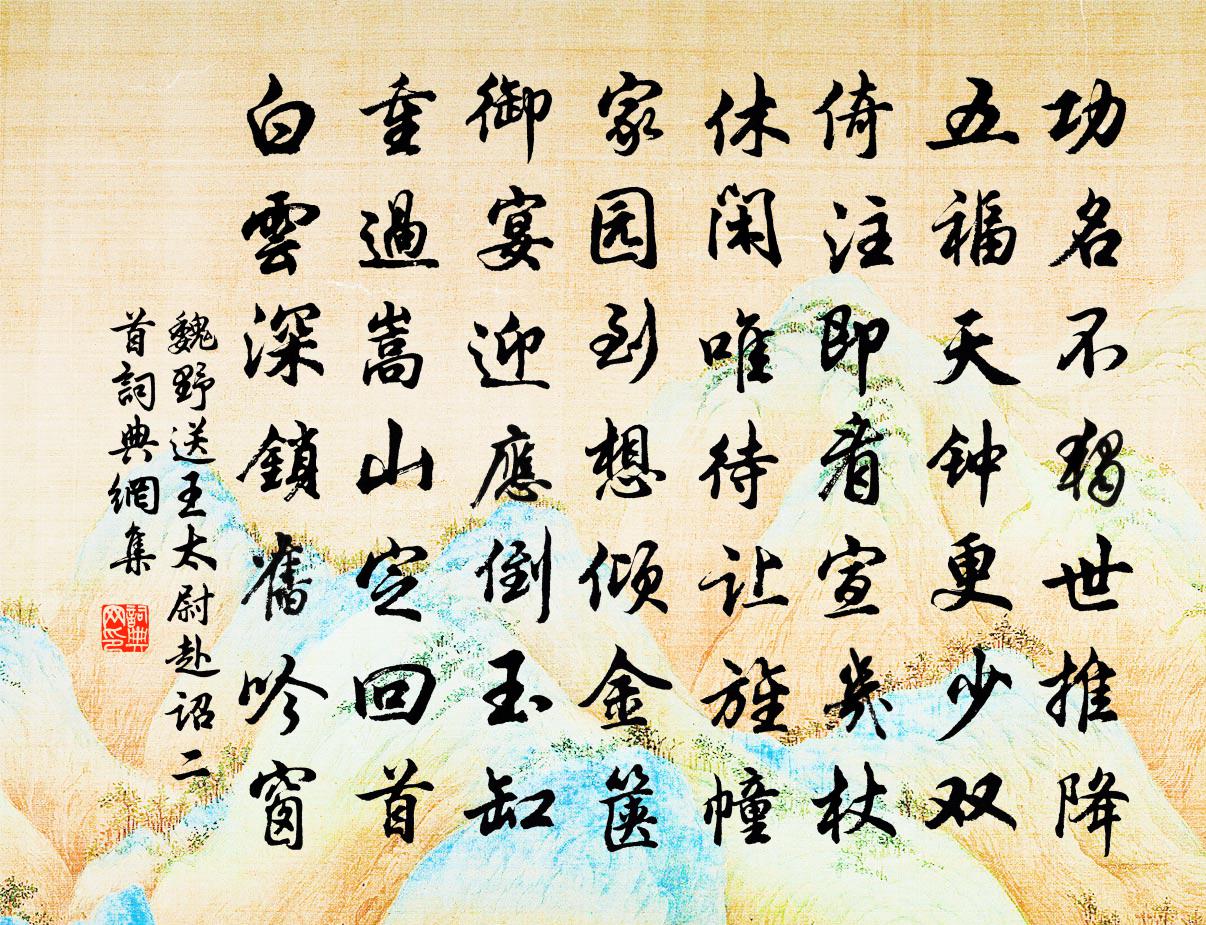 功名不独世推降
五福天钟更少双
倚注即看宣几杖
休闲唯待让旌幢
家园到想倾金箧
御宴迎应倒玉缸
重過嵩山定回首
白雲深鎖舊吟窗
魏野送王太尉赴诏二
首詞典網集
詞典网印